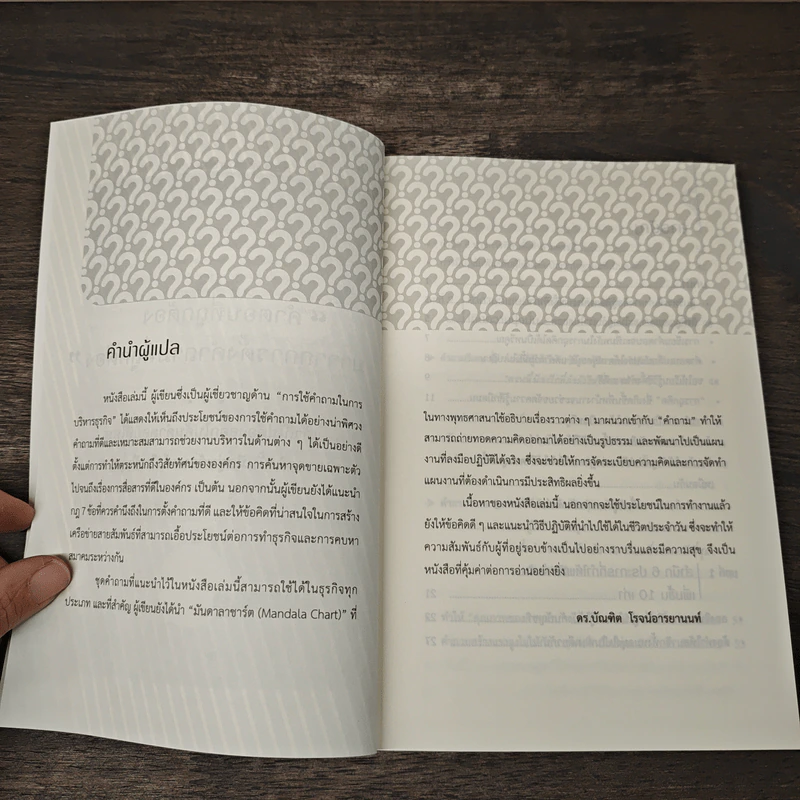 คำนำผู้แปล
หนังสือเล่มนี้ ผู้เขียนซึ่งเป็นผู้เชี่ยวชาญด้าน “การใช้คำถามในการ
บริหารธุรกิจ” ได้แสดงให้เห็นถึงประโยชน์ของการใช้คำถามได้อย่างน่าพิศวง
คำถามที่ดีและเหมาะสมสามารถช่วยงานบริหารในด้านต่าง ๆ ได้เป็นอย่างดี
ตั้งแต่การทำให้ตระหนักถึงวิสัยทัศน์ขององค์กร การค้นหาจุดขายเฉพาะตัว
ไปจนถึงเรื่องการสื่อสารที่ดีในองค์กร เป็นต้น นอกจากนั้นผู้เขียนยังได้แนะนำ
กฎ 7 ข้อที่ควรคำนึงถึงในการตั้งคำถามที่ดี และให้ข้อคิดที่น่าสนใจในการสร้าง
เครือข่ายสายสัมพันธ์ที่สามารถเอื้อประโยชน์ต่อการทำธุรกิจและการคบหา
สมาคมระหว่างกัน
ชุดคำถามที่แนะนำไว้ในหนังสือเล่มนี้สามารถใช้ได้ในธุรกิจทุก
ประเภท และที่สำคัญ ผู้เขียนยังได้นำ “มันดาลาชาร์ต (Mandala Chart)” ที่
ในทางพุทธศาสนาใช้อธิบายเรื่องราวต่าง ๆ มาผนวกเข้ากับ “คำถาม” ทำให้
สามารถถ่ายทอดความคิดออกมาได้อย่างเป็นรูปธรรม และพัฒนาไปเป็นแผน
งานที่ลงมือปฏิบัติได้จริง ซึ่งจะช่วยให้การจัดระเบียบความคิดและการจัดทำ
แผนงานที่ต้องดำเนินการมีประสิทธิผลยิ่งขึ้น
เนื้อหาของหนังสือเล่มนี้ นอกจากจะใช้ประโยชน์ในการทำงานแล้ว
ยังให้ข้อคิดดี ๆ และแนะนำวิธีปฏิบัติที่นำไปใช้ได้ในชีวิตประจำวัน ซึ่งจะทำให้
ความสัมพันธ์กับผู้ที่อยู่รอบข้างเป็นไปอย่างราบรื่นและมีความสุข จึงเป็น
หนังสือที่คุ้มค่าต่อการอ่านอย่างยิ่ง
ดร.บัณฑิต โรจน์อารยานนท์